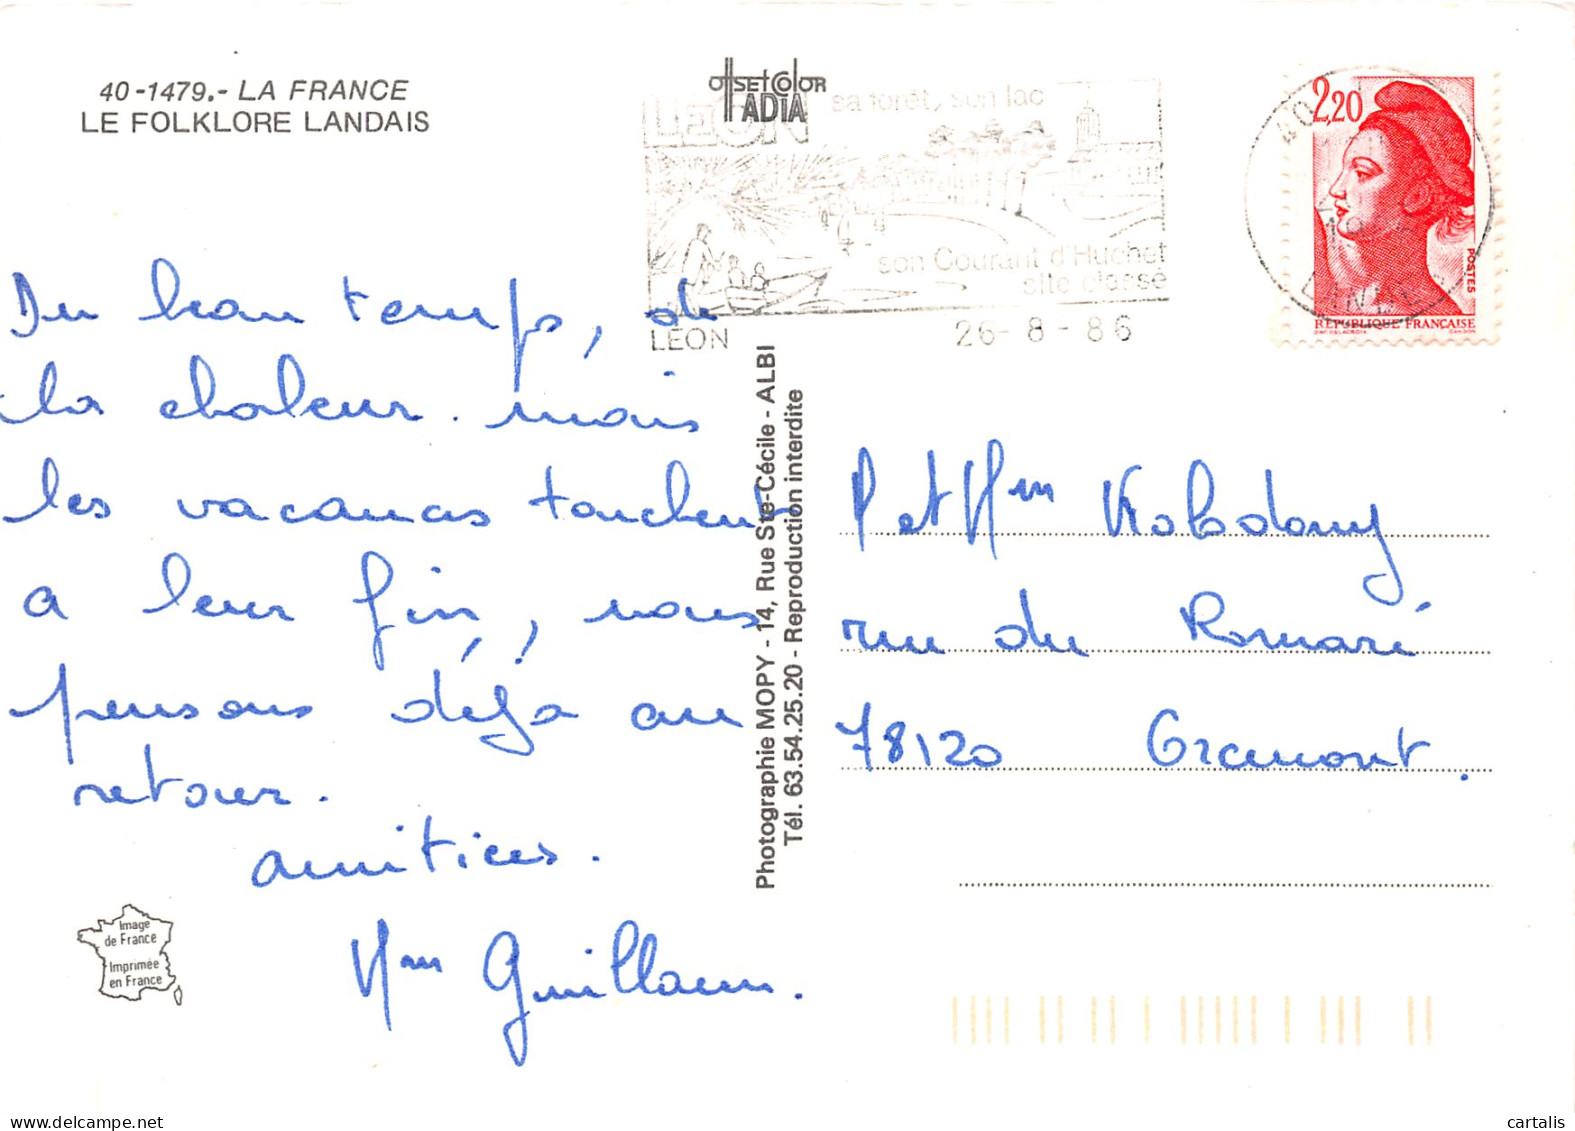 40-1479.- LA FRANCE
LE FOLKLORE LANDAIS
OFFSET COLOR
ADIA
LEON sa forêt, son lac
son Courant d'Huchet
site classé
LEON 26-8-86
40
LANDES
2,20
POSTES
RÉPUBLIQUE FRANÇAISE
Du beau temps, de
la chaleur. mais
les vacances touchent
a leur fin, nous
pensons déjà au
retour.
amities.
Mme Guillaum.
Photographie MOPY - 14, Rue Ste-Cécile - ALBI
Tél. 63.54.25.20 - Reproduction interdite
et Mme
rue du
78120
Image
de France
Imprimée
en France
delcampe.net
cartalis